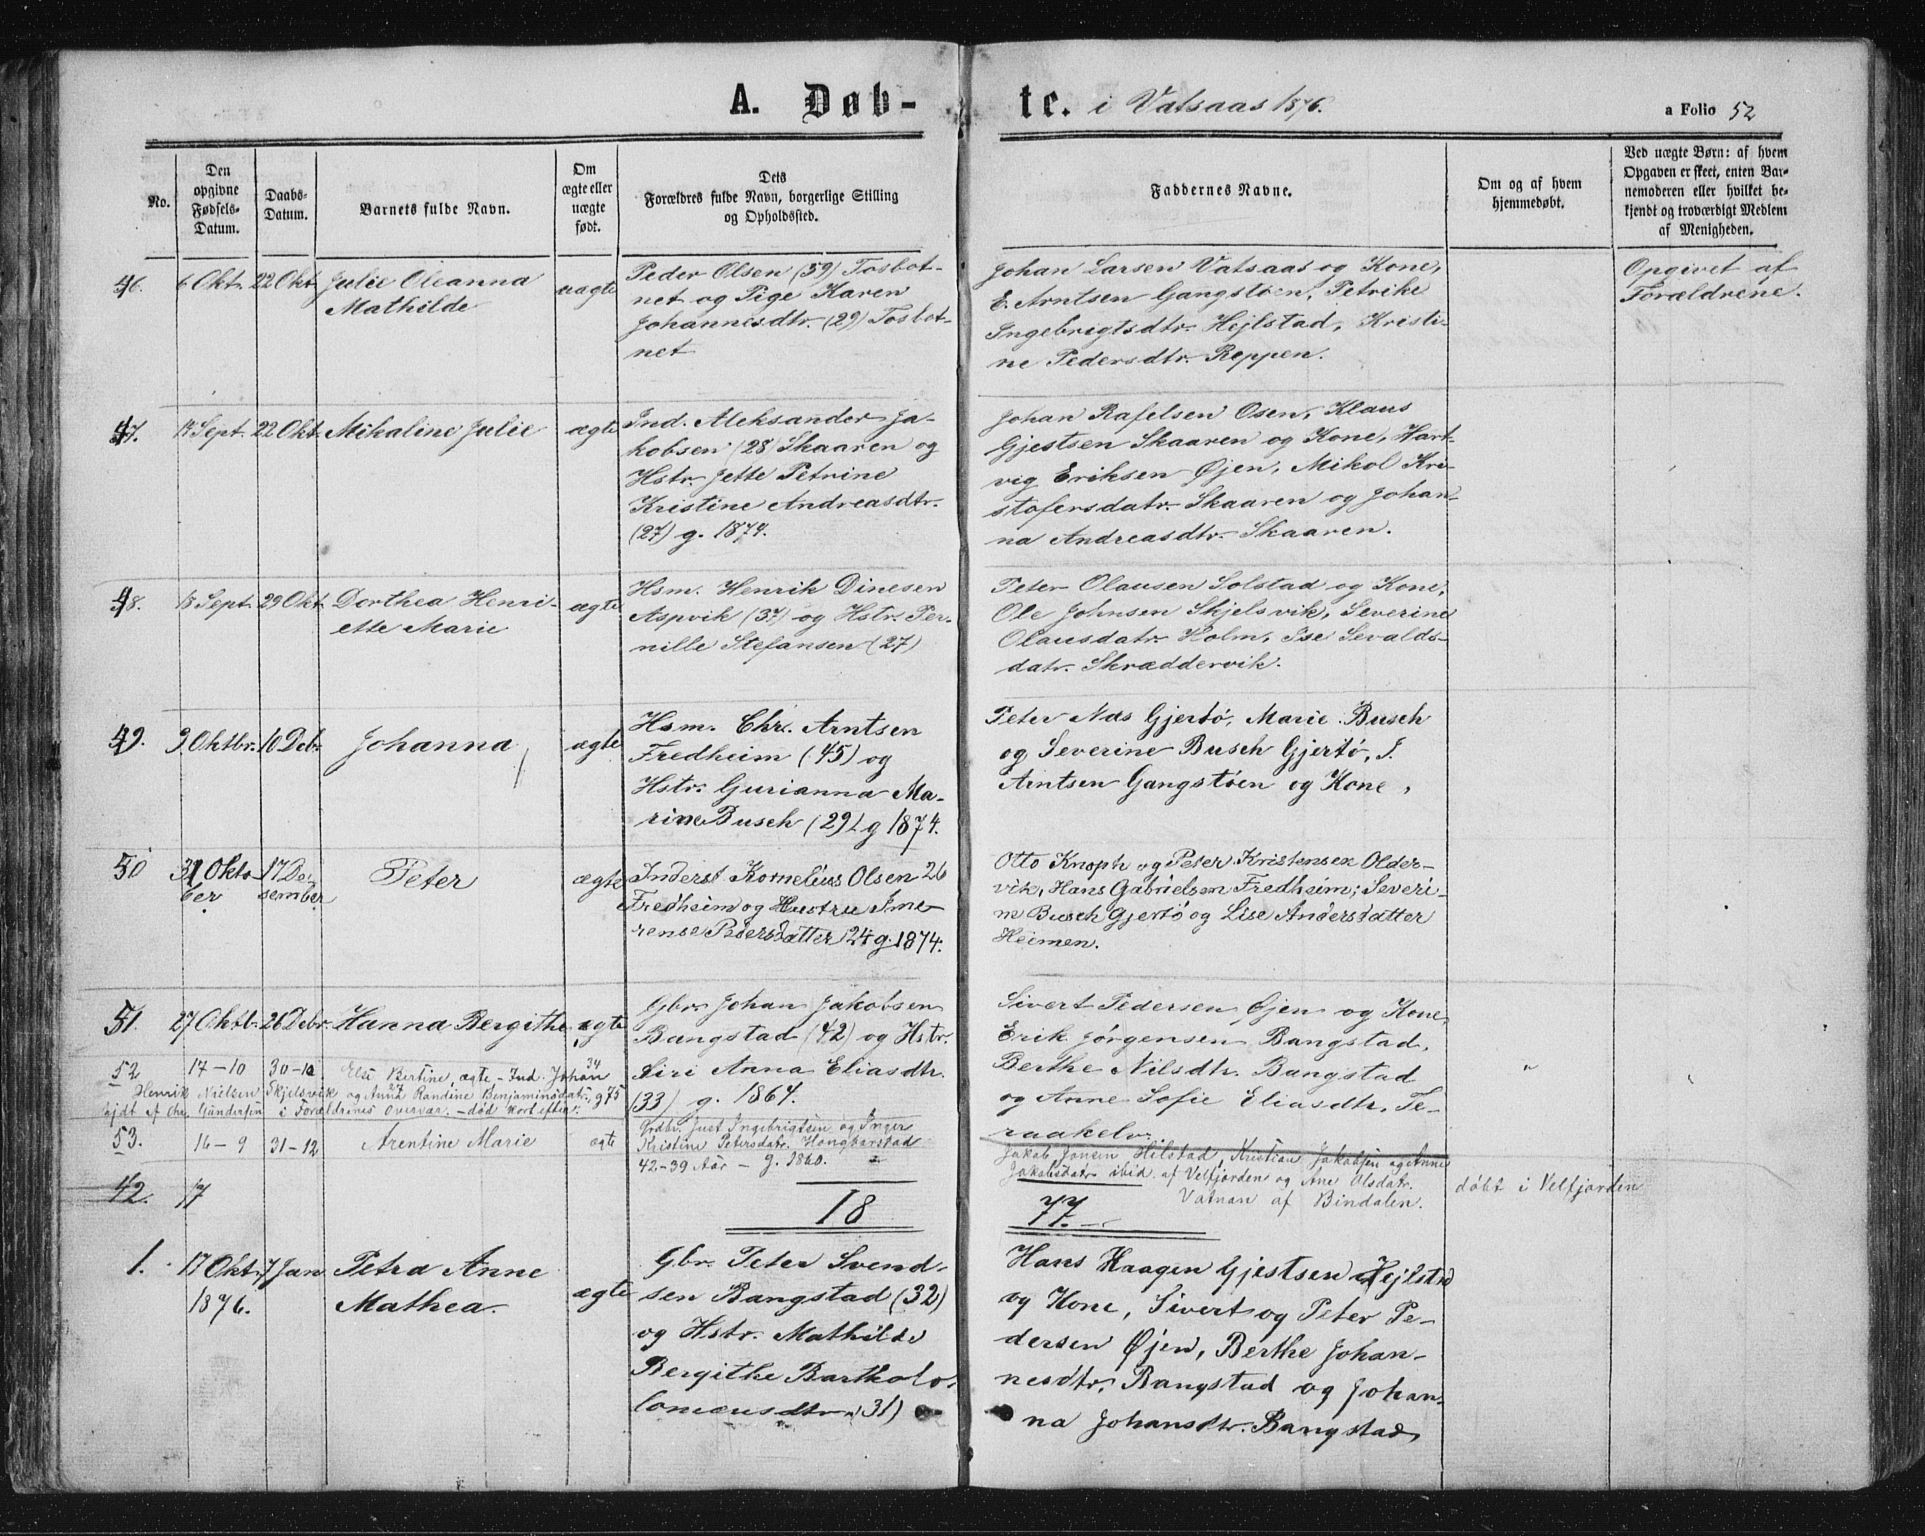 A. Døb- te. i Vatsaas 1876. a Folio 52
No.
Den opgivne Fødsels-Datum.
Daabs-Datum.
Barnets fulde Navn.
Om ægte eller uægte født.
Dets Forældres fulde Navn, borgerlige Stilling og Opholdssted.
Faddernes Navne.
Om og af hvem hjemmedøbt.
Ved uægte Børn: af hvem Opgaven er skeet, enten Barnemoderen eller hvilket bekjendt og troværdigt Medlem af Menigheden.
46. 6 Okt. 22 Okt. Julie Oleanna
Mathilde
uagte
Peder Olsen (59) Tosbot-
net og Pige Karen
Johannesdtr. (29) Tosbot-
net
Johan Larsen Vatsaas og Kone,
E. Arntsen Gangstøen, Petrike
Ingebrigtsdtr. Hejlstad, Kristi-
ne Pedersdtr. Reppen.
Opgivet af
Forældrene.
47. Sept. 22 Okt. Mikaline Julie ægte
Ind. Aleksander Ja-
kobsen (28) Skaaren og
Hstr. Jette Petrine
Kristine Andreasdtr.
(27) g. 1874.
Johan Rafelsen Osen, Klaus
Gjestsen Skaaren og Kone, Hart-
vig Eriksen Øjen, Mikol Kri-
stofersdatr. Skaaren og Johan-
na Andreasdtr. Skaaren.
48. 13 Sept. 29 Okt. Dorthea Henri-
ette Marie
ægte
Hsm. Henrik Dinesen
Aspvik (37) og Hstr. Per-
nille Stefansen (27)
Peter Olausen Solstad og Kone,
Ole Johnsen Skjelsvik, Severine
Olausdatr. Holm, Ise Sevalds-
datr. Skræddervik.
49. 9 Oktbr. 10 Debr. Johanna ægte
Hsm. Chr. Arntsen
Fredheim (45) og
Hstr. Gurianna Ma-
rine Busch (29) g 1874.
Peter Næs Gjertø, Marie Busch
og Severine Busch Gjertø, J.
Arntsen Gangstøen og Kone,
50 31 Okto-
ber
17 De-
sember
Peter ægte
Inderst Kornelius Olsen 26
Fredheim og Hustru Ime-
rense Pedersdatter 24 g. 1874.
Otto Knoph og Peter Kristensen Older-
vik, Hans Gabrielsen Fredheim; Severi-
ne Busch Gjertø og Lise Andersdatter
Heimen.
51. 27 Oktb. 26 Debr. Hanna Bergithe ægte
Gbr. Johan Jakobsen
Bangstad (42) og Hstr.
Siri Anna Eliasdtr.
(33) g. 1864.
Sivert Pedersen Øjen og Kone,
Erik Jørgensen Bangstad,
Berthe Nilsdtr. Bangstad
og Anne Sofie Eliasdtr. Te-
raakelv.
52 14-10 30-10 Else Bertine, ægte - Ind. Johan 34
Henrik Nielsen Skjelsvik og Anna Randine Benjaminsdatr. 27, g 75
hjdt af Chr. Gundersen i Forældrenes Overvær. - død kort efter.
53. 16-9 31-12 Arentine Marie ægte
Grdbr. Just Ingebrigtsen og Inger
Kristine Petersdatr. Hongbarstad
42-39 Aar - g. 1860.
Jakob Jonsen Hilstad, Kristian Jakobsen og Anne
Jakobsdatr. ibid. af Velfjorden og Ane Olsdatr.
Vatnan af Bindalen.
døbt i Velfjorden
42. 17
18
77.
1. 17 Okt. 7 Jan Petra Anne
1876. Mathea.
ægte
Gbr. Peter Svend-
sen Bangstad (32)
og Hstr. Mathilde
Bergithe Bartholo-
lomæusdtr. (31)
Hans Haagen Gjestsen Hejlstad
og Kone, Sivert og Peter Pe-
dersen Øjen, Berthe Johan-
nesdtr. Bangstad og Johan-
na Johansdtr. Bangstad,